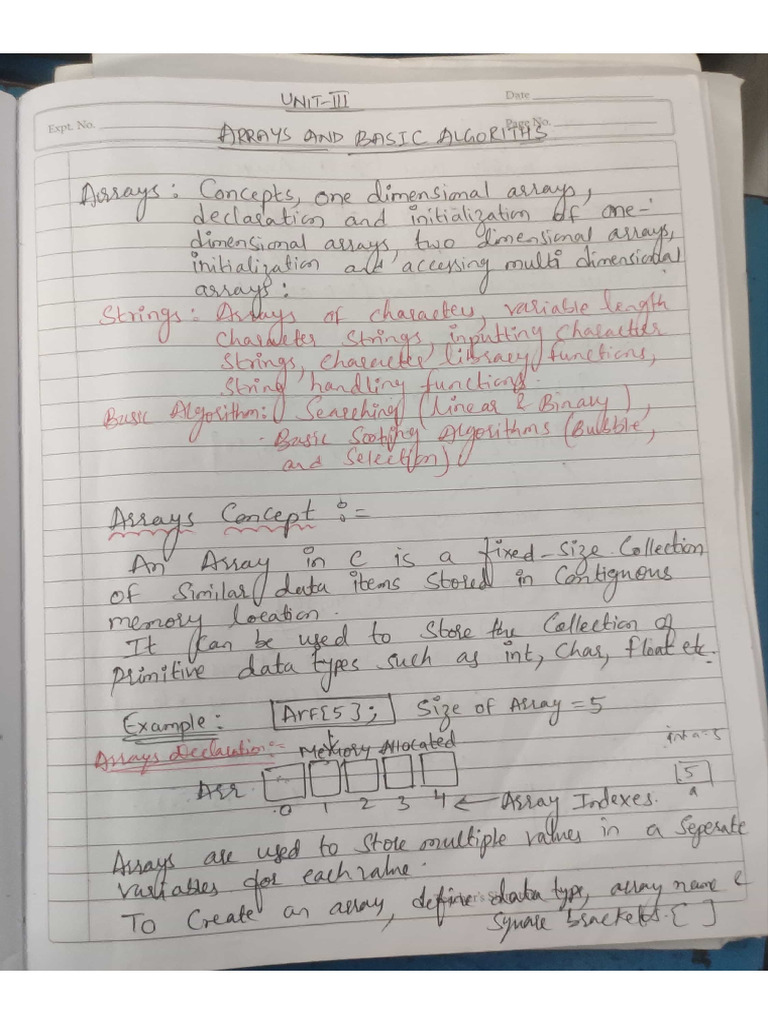 UNIT-III
Date
Expt. No.
Page No.
ARRAYS AND BASIC ALGORITHS
Arrays: Concepts, one dimensional arrays,
declaration and initialization of one-
dimensional arrays, two dimensional arrays,
initialization and accessing multi dimensional
arrays:
Strings: Arrays of character, variable length
character strings, inputting character
strings, character library functions,
string handling functions.
Basic Algorithm: Searching (linear & Binary),
Basic Sorting Algorithms (Bubble,
and Selection)
Arrays Concept :=
An Array in C is a fixed-size Collection
of similar data items stored in Contiguous
memory location.
It can be used to store the Collection of
primitive data types such as int, Char, float etc.
Example: Arr[5]; Size of Array = 5
Arrays Declaration:- Memory Allocated
int a = 5
Arr
5
a
0 1 2 3 4 ← Array Indexes.
Arrays are used to store multiple values in a Seperate
variables for each value.
To Create an array, define data type, array name &
square brackets. [ ]